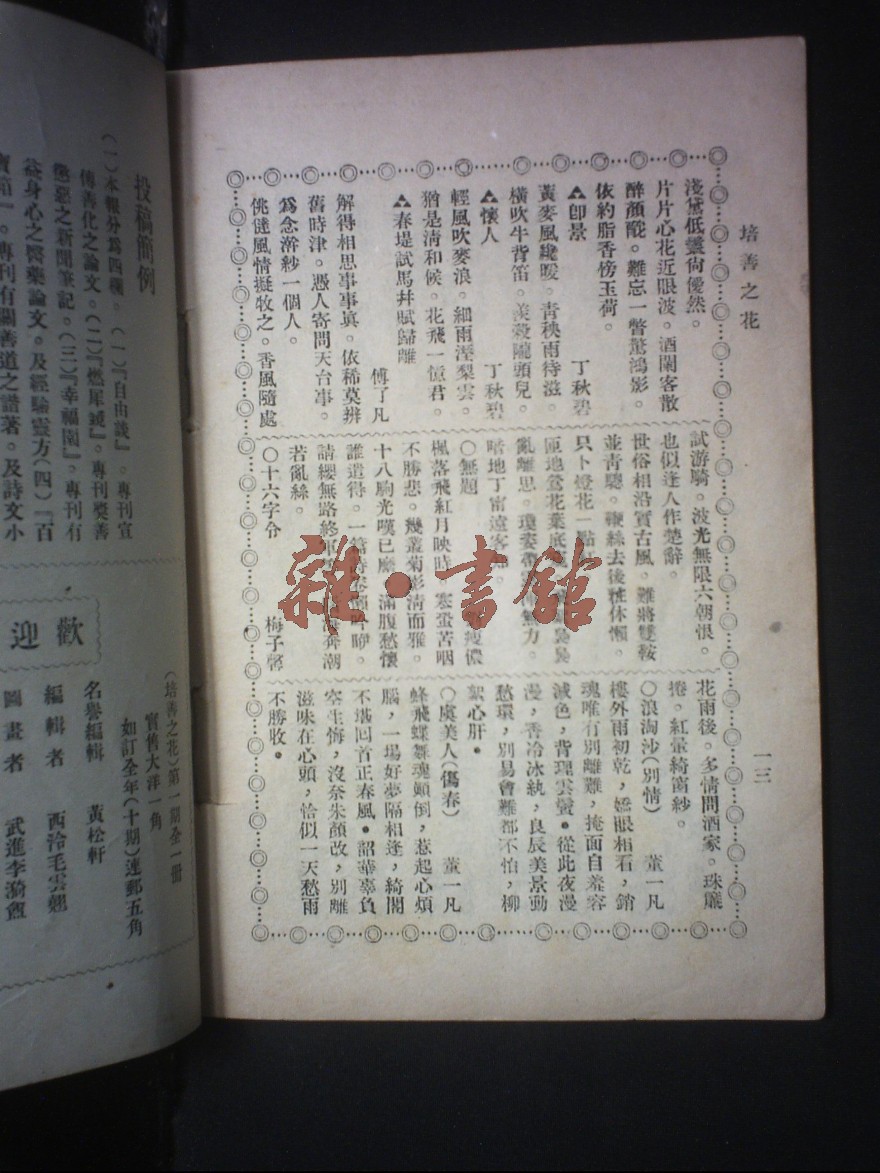 培善之花
一三
淺黛低鬟尙優然。
片片心花近眼波。酒闌客散
醉顏酡。難忘一瞥驚鴻影。
依約脂香傍玉荷。
卽景 丁秋碧
黃麥風纔暖。靑秧雨待滋。
橫吹牛背笛。羨殺隴頭兒。
懷人 丁秋碧
輕風吹麥浪。細雨溼梨雲。
猶是淸和候。花飛一憶君。
春堤試馬幷賦歸離
傅了凡
解得相思事事眞。依稀莫辨
舊時津。憑人寄問天台事。
爲念澣紗一個人。
佻㒓風情擬牧之。香風隨處
試游騎。波光無限六朝恨。
也似逢人作楚辭。
世俗相沿實古風。難將雙鞍
並靑驄。鞭絲去後粧休懶。
只卜燈花一點
匝地鶯花葉底
亂離思。瓊姿 無力。
暗地丁甯遠客
〇無題 儂
楓落飛紅月映時。寒蛩苦咽
不勝悲。幾叢菊影淸而雅。
十八駒光嘆已 滿腹愁懷
誰遣待。一篇 咿。
請纓無路終 奔潮
若亂絲。
〇十六字令 梅子馨
花雨後。多情問酒家。珠簾
捲。紅暈綺窗紗。
〇浪淘沙(別情) 董一凡
樓外雨初乾，嬌眼相看，銷
魂唯有別離難，掩面自羞容
減色，背理雲鬟•從此夜漫
漫，香冷冰紈，良辰美景動
愁環，別易會難都不怕，柳
絮心肝•
〇虞美人(傷春) 董一凡
蜂飛蝶舞魂顚倒，惹起心煩
腦，一場好夢隔相逢，綺閣
不堪回首正春風•韶華辜負
空生悔，沒奈朱顏改，別離
滋味在心頭，恰似一天愁雨
不勝收•
投稿簡例
(一)本報分爲四欄。(一)『自由談』。專刊宣
傳善化之論文。(二)『燃犀鏡』。專刊獎善
懲惡之新聞筆記。(三)『幸福園』。專刊有
益身心之醫藥論文。及經驗靈方(四)『百
寶箱』。專刊有關善道之譜著。及詩文小
歡迎
(培善之花)第一期全一册
實售大洋一角
如訂全年(十期)連郵五角
名譽編輯 黃松軒
編輯者 西泠毛雲翹
圖畫者 武進李漪
雜•書館